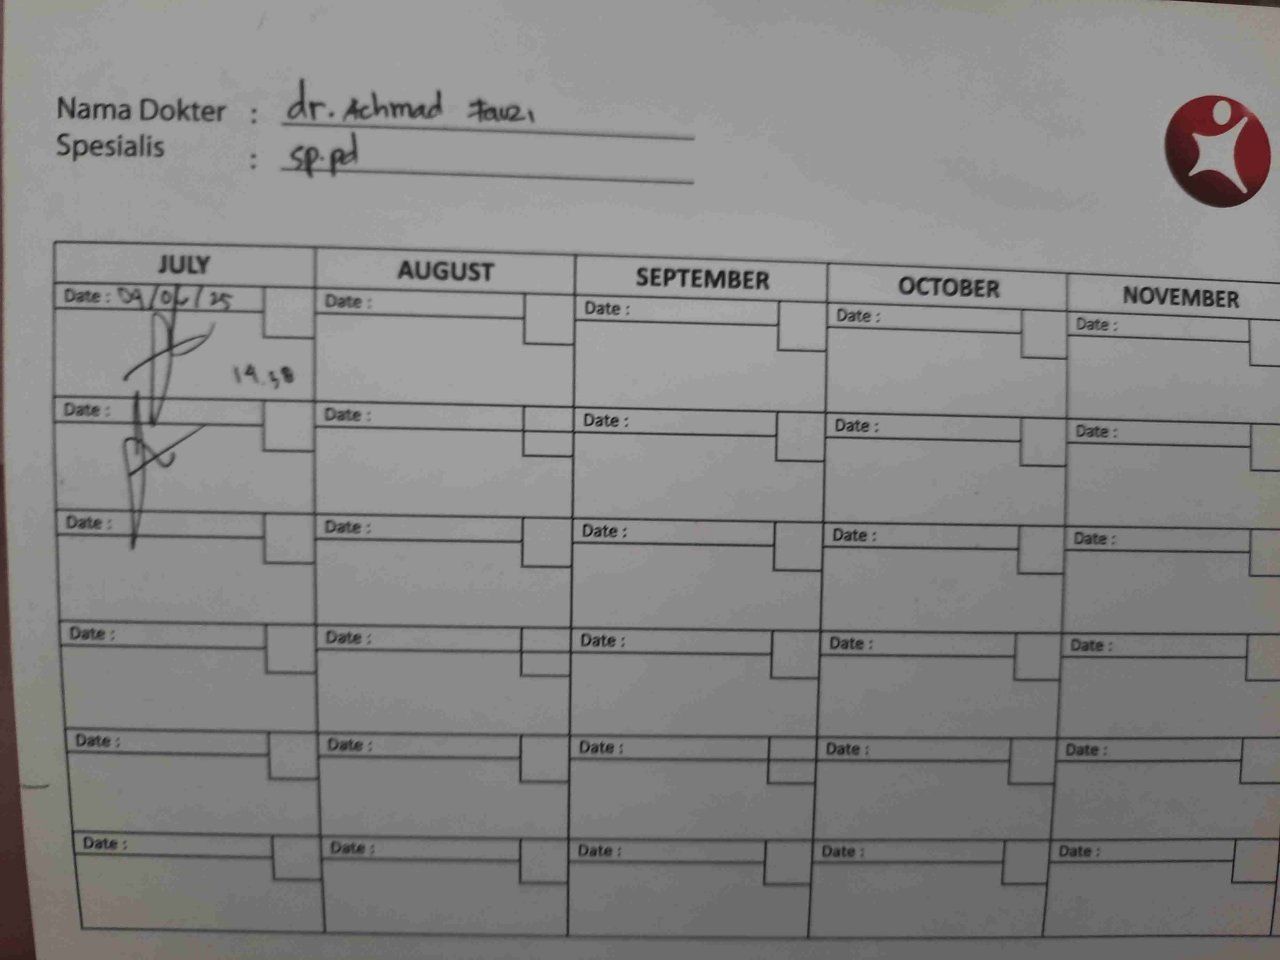 Nama Dokter : dr. Achmad Fauzi
Spesialis : sp.pd
JULY AUGUST SEPTEMBER OCTOBER NOVEMBER
Date : 09/06/25 Date : Date : Date : Date :
19.38
Date : Date : Date : Date : Date :
Date : Date : Date : Date : Date :
Date : Date : Date : Date : Date :
Date : Date : Date : Date : Date :
Date : Date : Date : Date : Date :